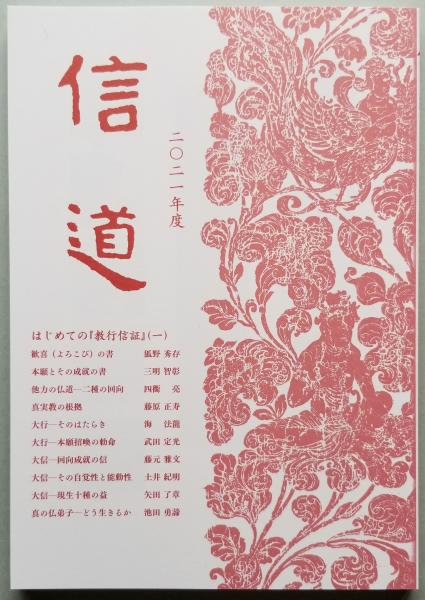 信道
二〇二一年度
はじめての『教行信証』(一)
歓喜（よろこび）の書 狐野 秀存
本願とその成就の書 三明 智彰
他力の仏道─二種の回向 四衢 亮
真実教の根拠 藤原 正寿
大行─そのはたらき 海 法龍
大行─本願招喚の勅命 武田 定光
大信─回向成就の信 藤元 雅文
大信─その自覚性と能動性 土井 紀明
大信─現生十種の益 矢田 了章
真の仏弟子─どう生きるか 池田 勇諦